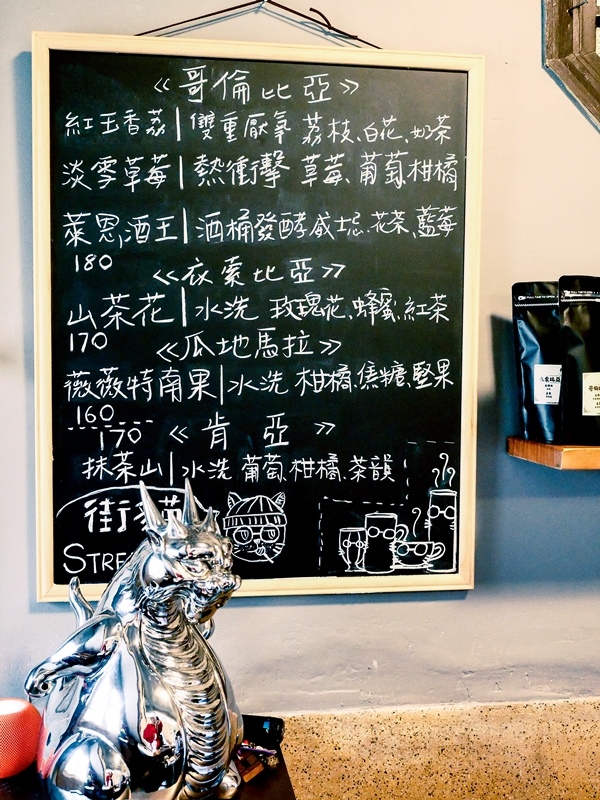 《哥倫比亞》
紅玉香荔|雙重厭氧 荔枝、白花、奶茶
淡雪草莓|熱衝擊 草莓、葡萄柑橘
萊恩酒王|酒桶發酵威士忌、花茶、藍莓
180
《衣索比亞》
山茶花|水洗 玫瑰花、蜂蜜、紅茶
170
《瓜地馬拉》
薇薇特南果|水洗 柑橘、焦糖、堅果
160
170 《肯亞》
抹茶山|水洗 葡萄、柑橘、茶韻
街
STRE